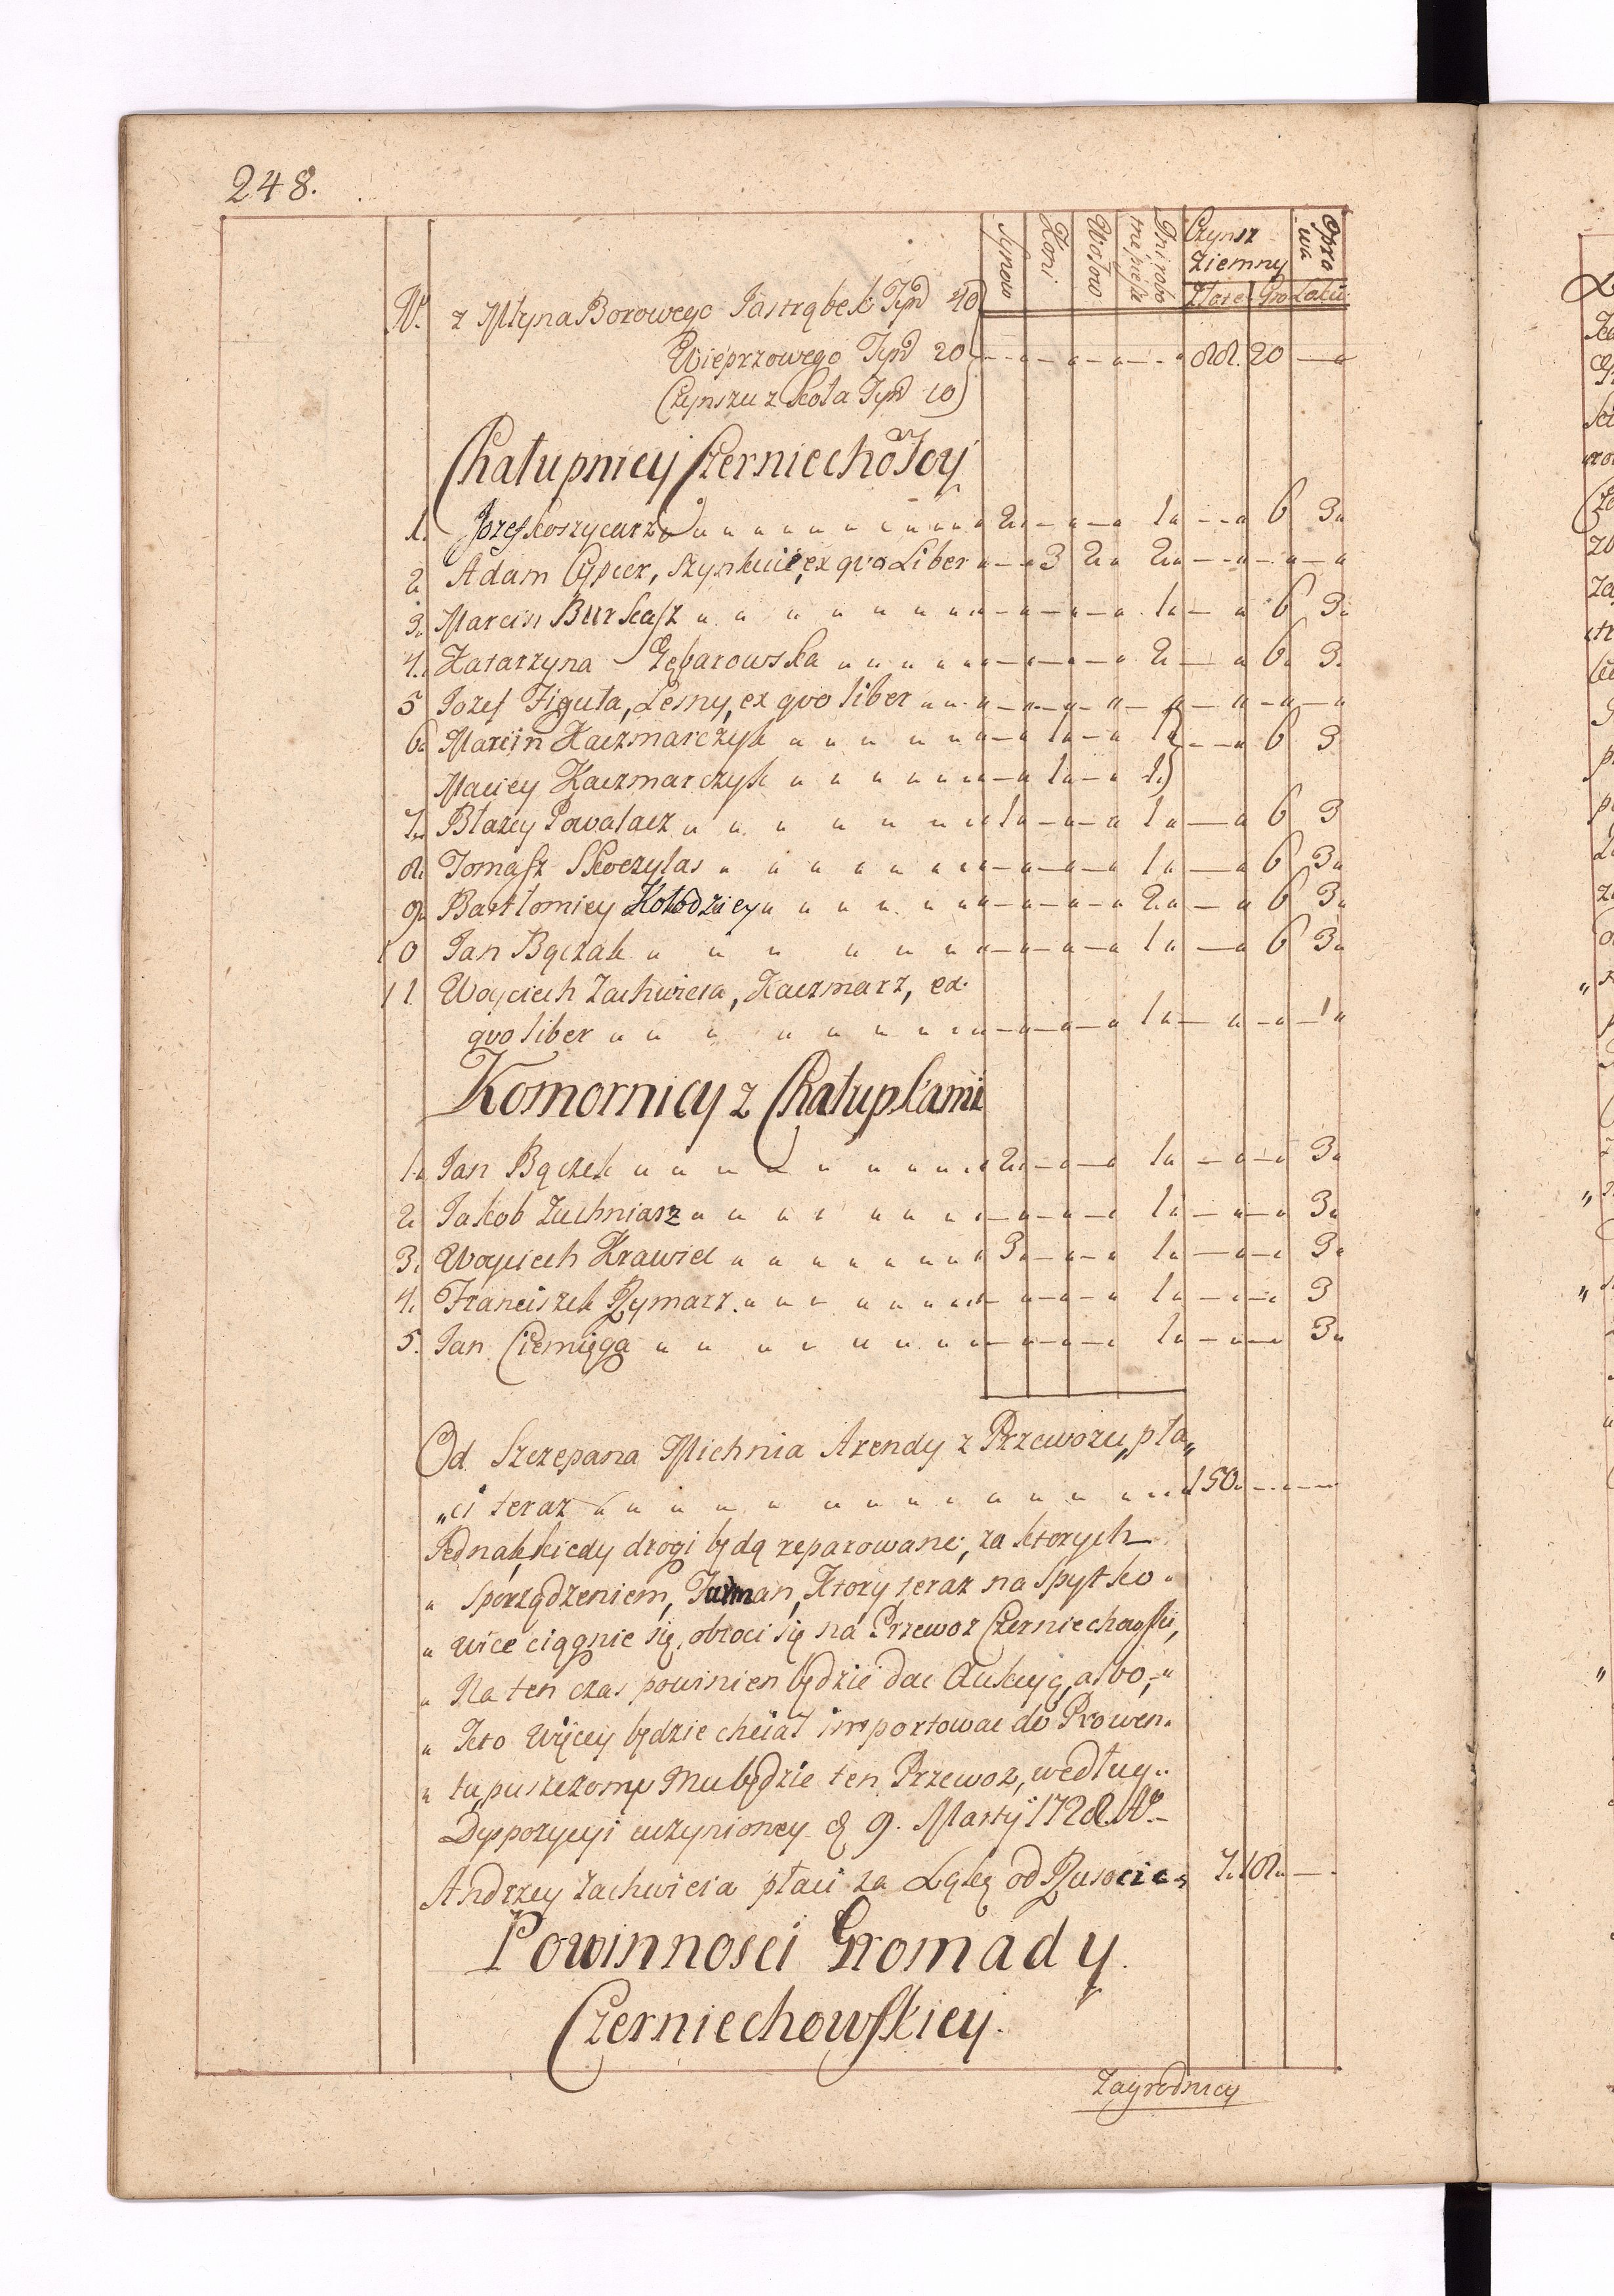 248.
Synow Koni Wołow Dni robo: Czynsz Opra
cze piesze Ziemny wa
Złote Gro Łatei
N. z Młyna Borowego Jastrąbek Tynf 40
Wieprzowego Tynf 20 88. 20
Czynszu z Koła Tynf 10
Chałupnicy Czerniechoscy
1. Jozef Koszycarz 2 1 6 3
2 Adam Cypcer, Szynkuie, ex quo Liber 3 2 2
3. Marcin Burkasz 1 6 3
4. Katarzyna Zębarowska 2 6 3
5 Jozef Figuła, Leśny, ex quo liber
6 Marcin Kaczmarczyk 1 1 6 3
Maciey Kaczmarczyk 1 1
7. Błażey Powałacz 1 1 6 3
8. Tomasz Skoczylas 1 6 3
9. Bartłomiey Kołodziey 2 6 3
10 Jan Bączek 1 6 3
11 Woyciech Zachwieia, Kaczmarz, ex
quo liber 1
Komornicy z Chałupkami
1. Jan Bączek 2 1 3
2. Jakob Zuchniarz 1 3
3. Woyciech Krawiec 3 1 3
4. Franciszek Rymarz 1 3
5. Jan Ciemięga 1 3
Od Szczepana Michnia Arendy z Przewozu, pła„
„ci teraz 150
Jednak, kiedy drogi będą reparowane, za ktorych
„ sporządzeniem, Furman, Ktory teraz na Spytko„
„ wice ciągnie się, obroci się na Przewoz Czerniechowski,
„ Na ten czas powinien będzie dac Aukcyą, albo,
„ Kto więcey będzie chciał importowac do Prowen„
„ tu, puszczony mu będzie ten Przewoz, według
Dyspozycyi uczynioney d 9. Martij 1728. A°
Andrzey Zachwieia płaci za Łąkę od Rusocic 7. 18
Powinnosci Gromady
Czerniechowskiey.
Zagrodnicy